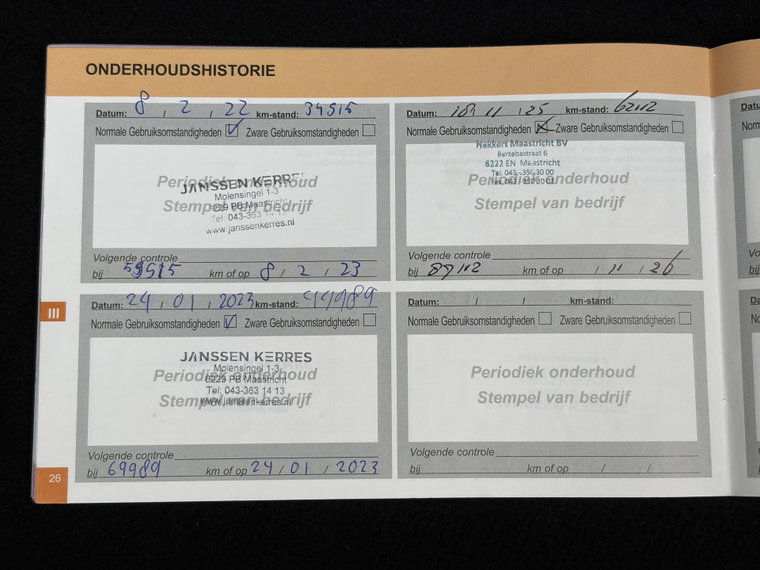 ONDERHOUDSHISTORIE
Datum: 8 / 2 / 22 km-stand: 34515
Normale Gebruiksomstandigheden Zware Gebruiksomstandigheden
Periodiek onderhoud
JANSSEN KERRES
Molensingel 1-3
6229 PB Maastricht
Stempel van bedrijf
Tel: 043-363 14 13
www.janssenkerres.nl
Volgende controle
bij 59515 km of op 8 / 2 / 23
Datum: 24 / 01 / 2023 km-stand: 44989
Normale Gebruiksomstandigheden Zware Gebruiksomstandigheden
JANSSEN KERRES
Molensingel 1-3
Periodiek onderhoud
6229 PB Maastricht
Tel: 043-363 14 13
Stempel van bedrijf
www.janssenkerres.nl
Volgende controle
bij 69989 km of op 24 / 01 / 2023
Datum: / 11 / 25 km-stand:
Normale Gebruiksomstandigheden Zware Gebruiksomstandigheden
Hekkert Maastricht BV
6222 EN Maastricht
Tel. 043 - 350 30 00
Periodiek onderhoud
Stempel van bedrijf
Volgende controle
bij km of op / 11 / 26
Datum: / / km-stand:
Normale Gebruiksomstandigheden Zware Gebruiksomstandigheden
Periodiek onderhoud
Stempel van bedrijf
Volgende controle
bij km of op / /
III
26